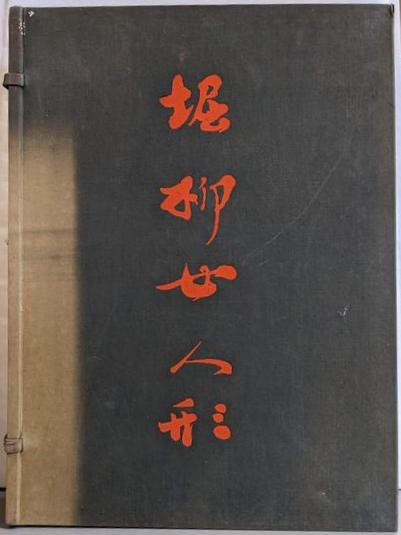 堀柳女人形